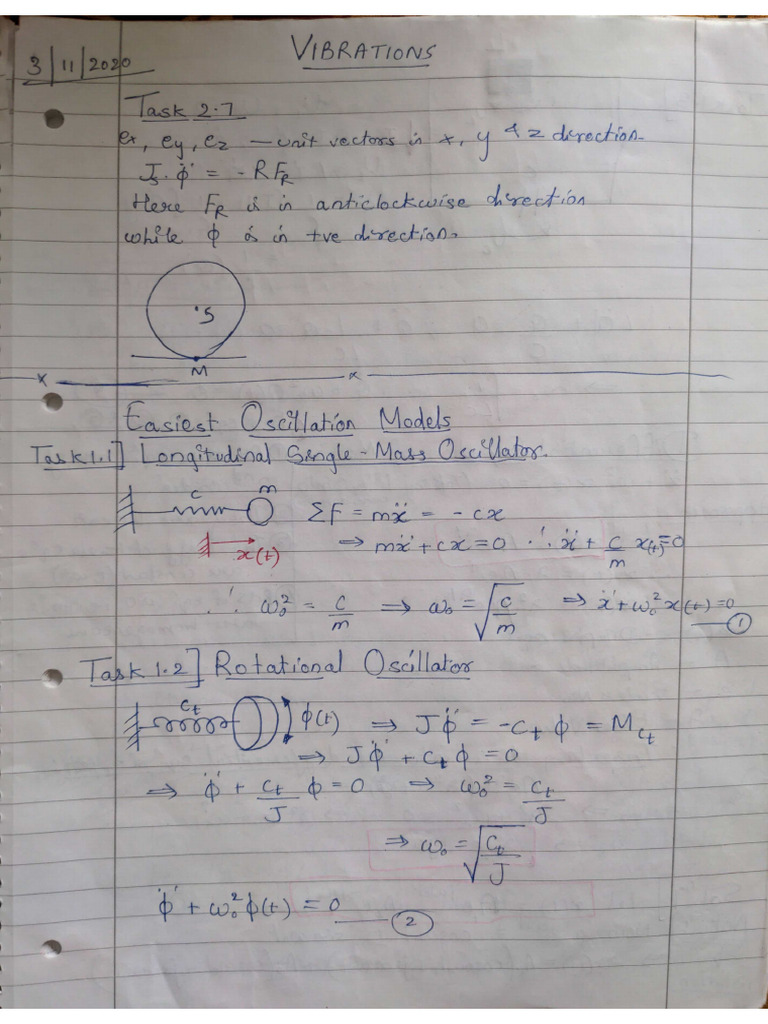 VIBRATIONS
3/11/2020
Task 2.7
ex, ey, ez — unit vectors in x, y & z direction.
Js. φ̈ = - RFR
Here FR is in anticlockwise direction
while φ is in +ve direction.
S
M
x — x —
Easiest Oscillation Models
Task 1.1] Longitudinal Single-Mass Oscillator.
c m ΣF = mẍ = - cx
x(t) ⇒ mẍ + cx = 0 ∴ ẍ + c/m x(t) = 0
∴ ω₀² = c/m ⇒ ω₀ = √(c/m) ⇒ ẍ + ω₀² x(t) = 0 — ①
Task 1.2] Rotational Oscillator
ct φ(t) ⇒ Jφ̈ = -ct φ = Mct
⇒ Jφ̈ + ct φ = 0
⇒ φ̈ + ct/J φ = 0 ⇒ ω₀² = ct/J
⇒ ω₀ = √(ct/J)
φ̈ + ω₀² φ(t) = 0 — ②